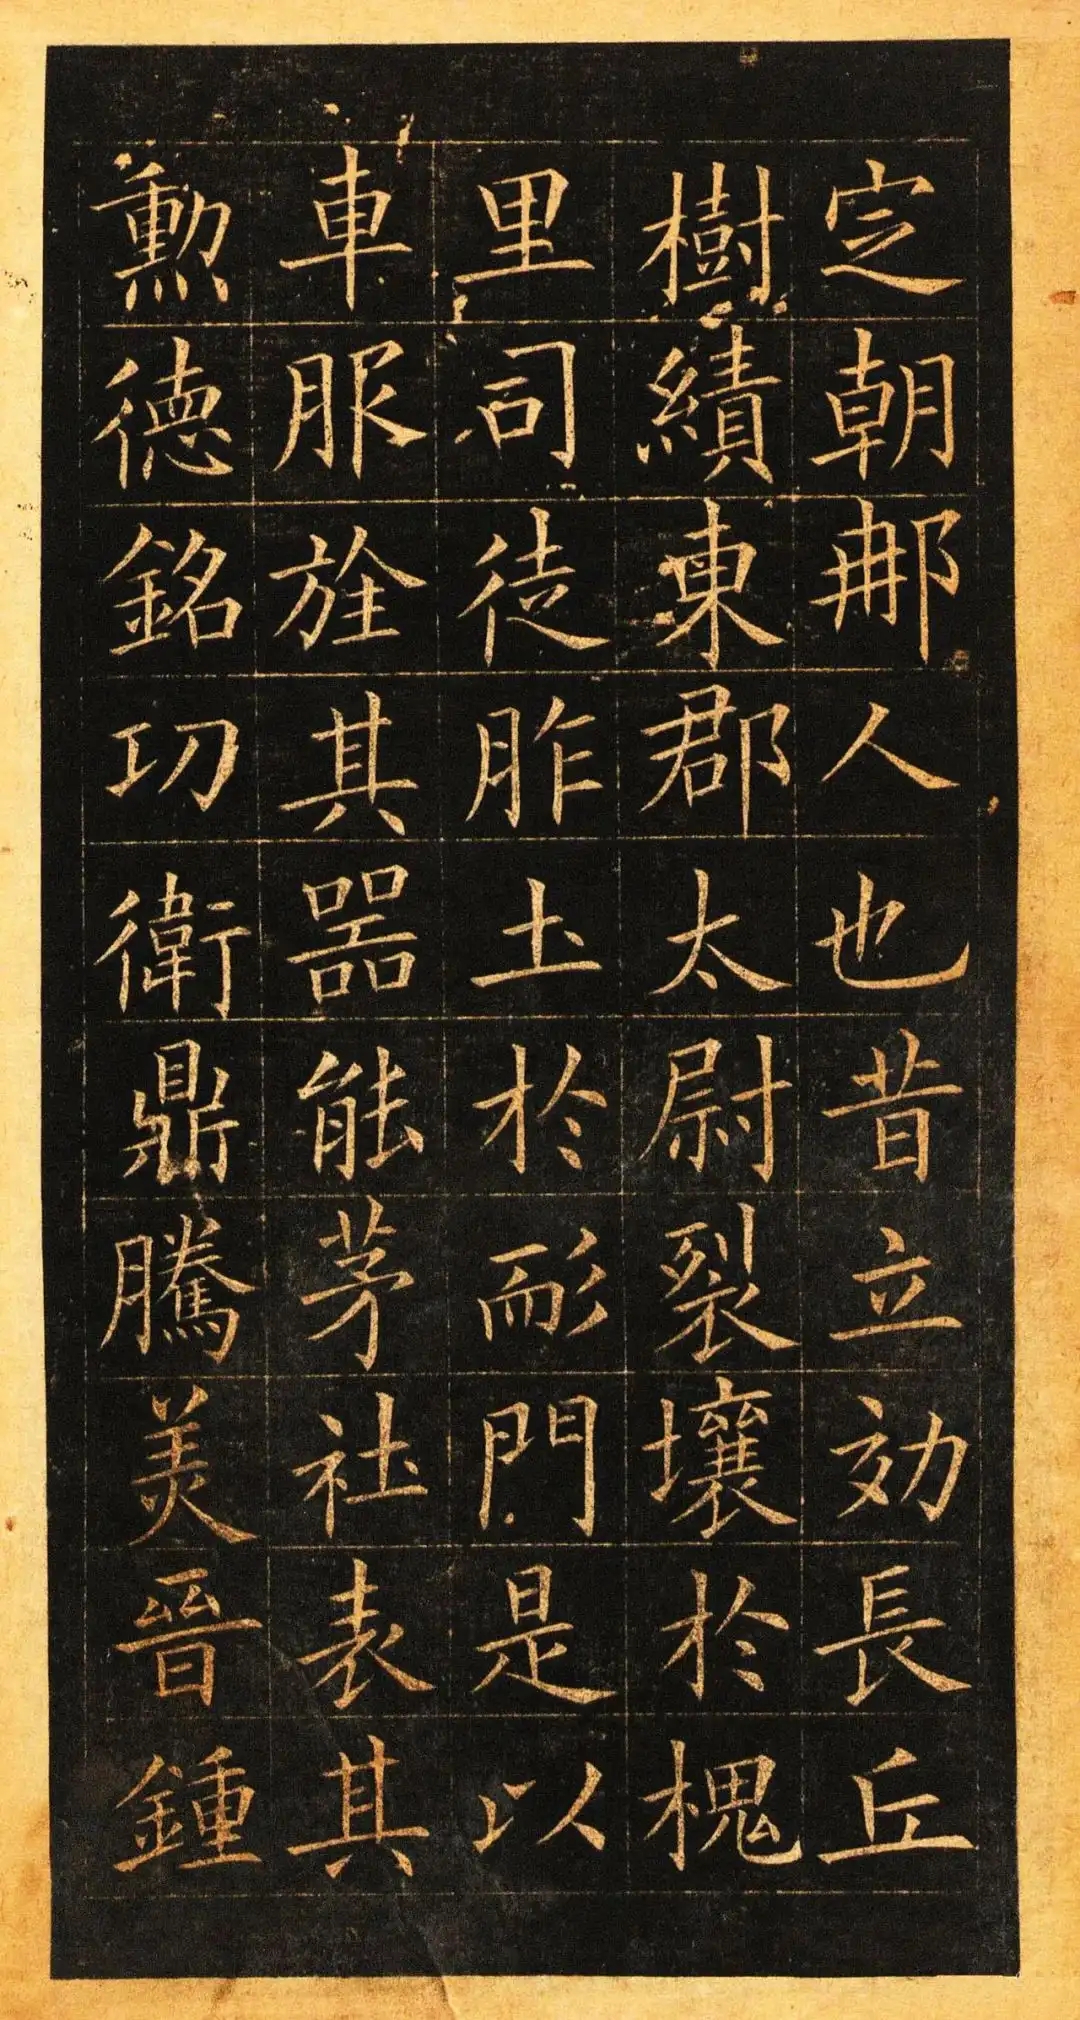 定朝𨙻人也昔立効長丘
樹績東郡太尉裂壤於槐
里司徒胙土於耏門是以
車服旌其器能茅社表其
勲德銘功衛鼎騰美晉鍾